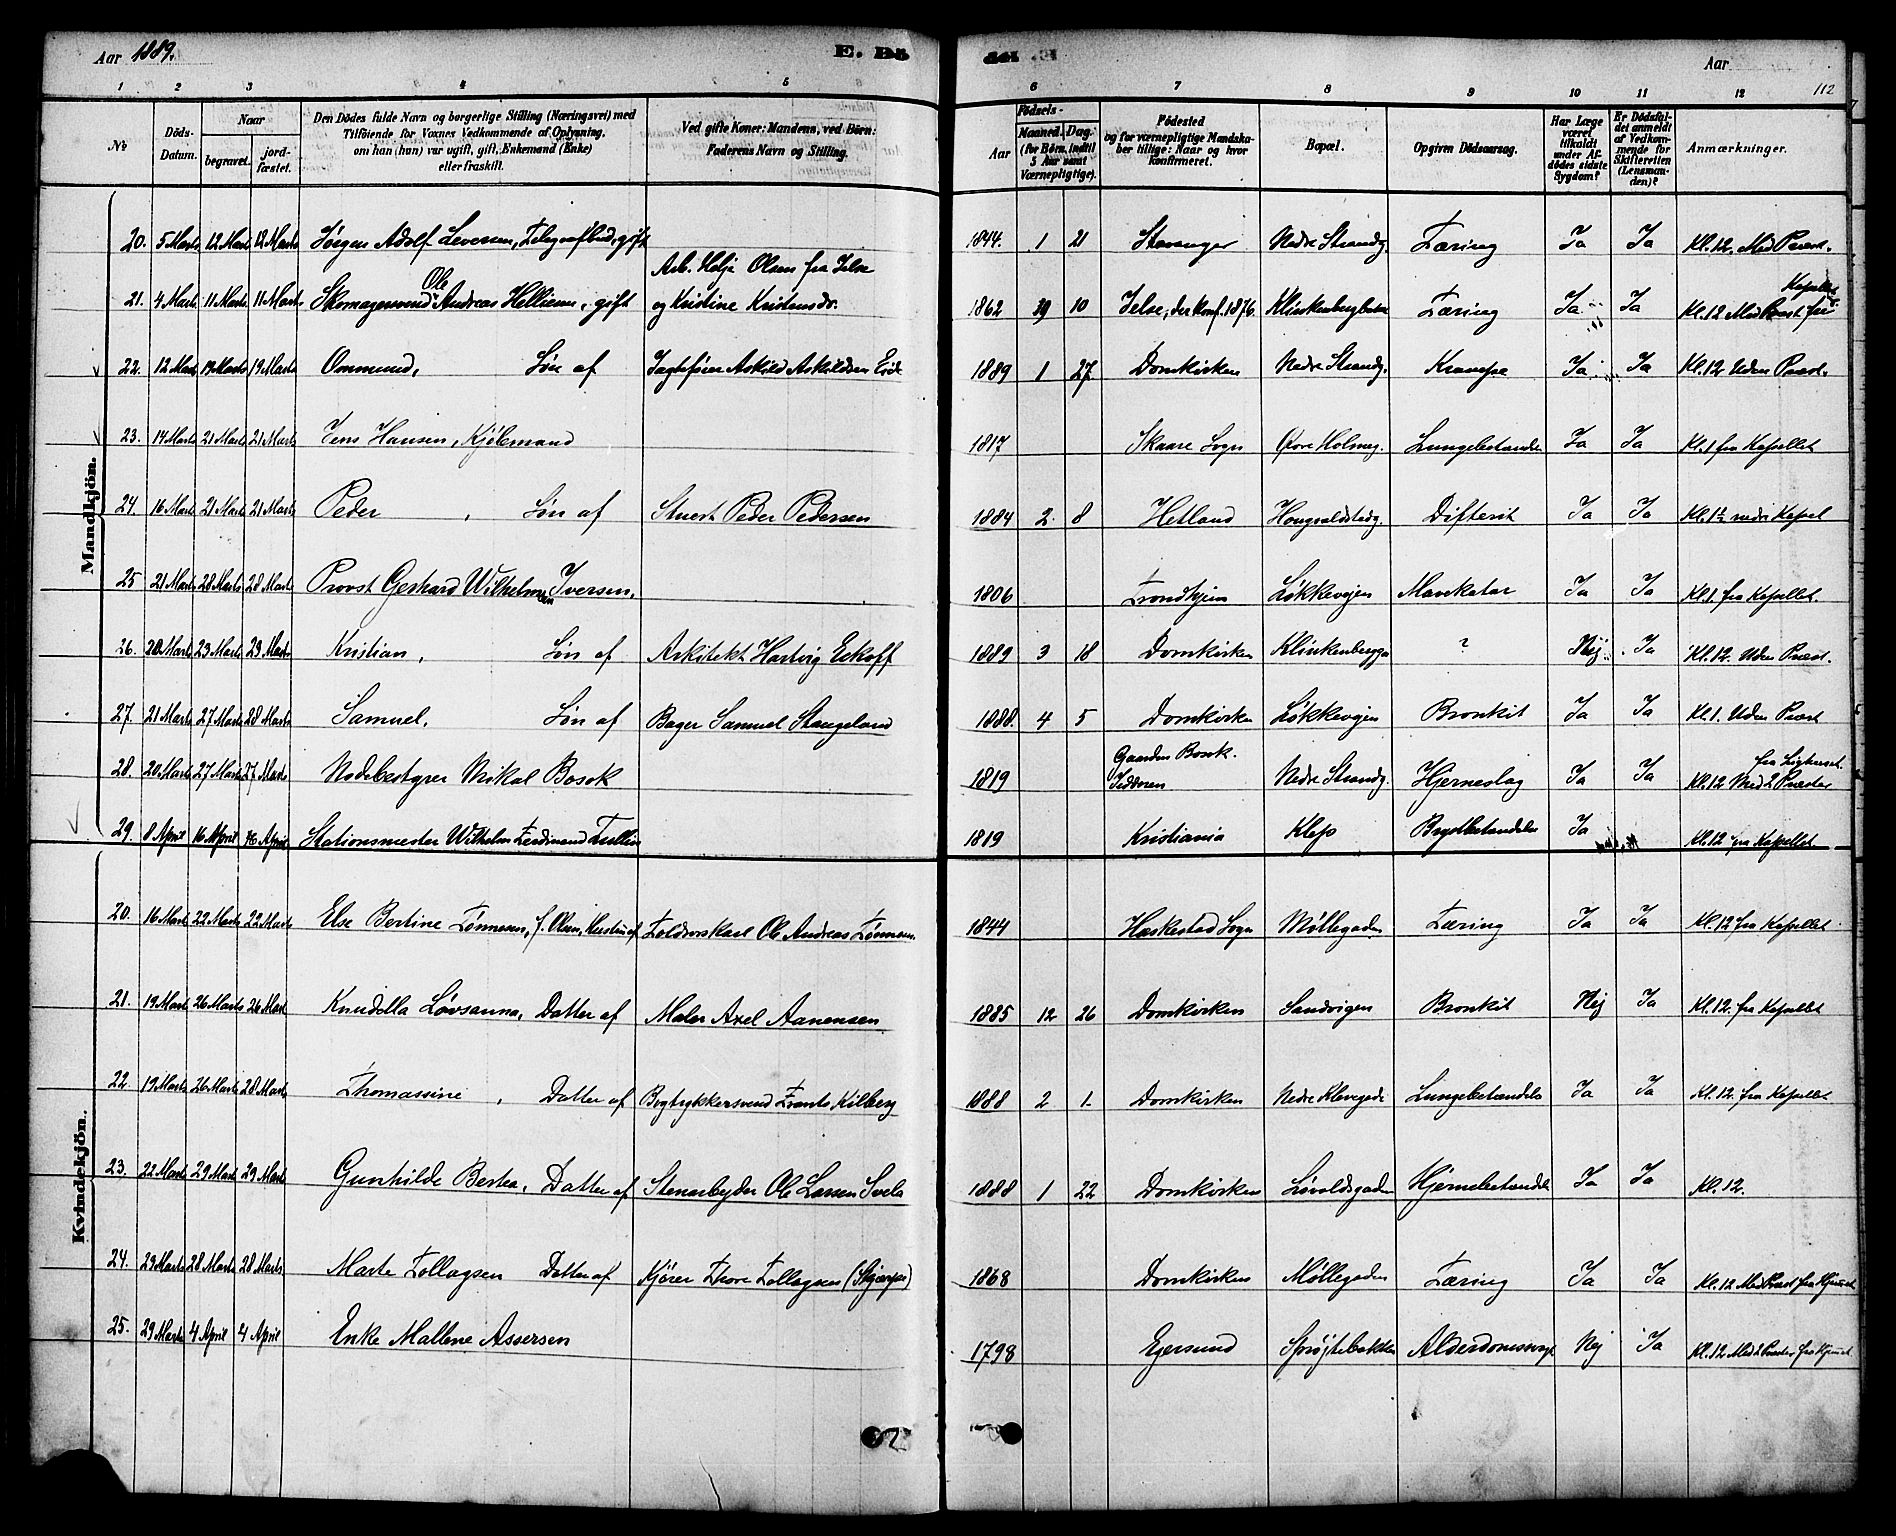 Aar 1889. E. Dö
Aar 112
1 2 3 4 5 6 7 8 9 10 11 12
No
Döds-Datum.
Naar
begravet.
jordfæstet.
Den Dödes fulde Navn og borgerlige Stilling (Næringsvei) med
Tilföiende for Voxnes Vedkommende af Oplysning,
om han (hun) var ugift, gift, Enkemand (Enke)
eller fraskilt.
Ved gifte Koner: Mandens, ved Börn:
Faderens Navn og Stilling.
Födsels-
Aar
Maaned. Dag.
(for Börn, indtil
5 Aar samt
Værnepligtige).
Födested
og for værnepligtige Mandska-
ber tillige: Naar og hvor
konfirmeret.
Bopæl.
Opgiven Dödsaarsag.
Har Læge
været
tilkaldt
under Af-
dödes sidste
Sygdom?
Er Dödsfal-
det anmeldt
af Vedkom-
mende for
Skifteretten
(Lensman-
den)?
Anmærkninger.
Mandkjön.
20. 5 Marts 12 Marts 12 Marts Jørgen Adolf Seversen, Telegrafbud, gift 1844. 1 21 Stavanger Nedre Strandg. Tæring Ja Ja Kl. 12. Med Præst.
21. 4 Marts 11 Marts 11 Marts Skomagersvend Ole Andreas Helliesen, gift Arb. Helje Olsen fra Jelse og Kristine Kristensdr. 1862 10 Jelse, der konf. 1876. Tæring Ja Ja Kl. 12 Med Præst fra Kapellet
22. 12 Marts 19 Marts 19 Marts Ommund, Søn af Jagtfører Askild Askildsen Eide 1889 1 27 Domkirken Nedre Strandg. Krampe Ja Ja Kl. 12 Uden Præst.
23. 14 Marts 21 Marts 21 Marts Jens Hansen, Kjøbmand 1817 Skaare Sogn Øvre Holmeg. Lungebetændelse Ja Ja Kl. 1 fra Kapellet
24. 16 Marts 21 Marts 21 Marts Peder, Søn af Stuert Peder Pedersen 1884 2. 8 Hetland Difterit Ja Ja Kl. 12 nedre Kapel
25 21 Marts 28 Marts 28 Marts Provst Gerhard Wilhelmsen Iversen. 1806 Trondhjem Løkkevejen Mavekatar Ja Ja Kl. 1. fra Kapellet.
26. 20 Marts 23 Marts 23 Marts Kristian, Søn af Arkitekt Hartvig Eckoff 1889 3 18 Domkirken Klinkenbergga ? Nej Ja Kl. 12. Uden Præst.
27. 21 Marts 27 Marts 28 Marts Samuel, Søn af Bager Samuel Stangeland 1888. 4 5 Domkirken Løkkevejen Bronkit Ja Ja Kl. 1. Uden Præst
28. 20 Marts 27 Marts 27 Marts Nodebestyrer Mikal Bosok 1819 Gaarden Jedderen Nedre Strandg. Hjerneslag Ja Ja Kl. 12 Med 2 Præster fra Lighuset.
29. 8 April 16 April 16 April Stationsmester Wilhelm Ferdinand Tullin 1819 Kristiania Klep Brystbetændelse Ja Kl. 12 fra Kapellet
Kvindekjön.
20. 16 Marts 22 Marts 22 Marts Else Bertine Tønnesen, f. Olsen, Hustru af Toldorskarl Ole Andreas Tønnesen. 1844 Heskestad Sogn Møllegaden Tæring Ja Ja Kl. 12 fra Kapellet
21. 19 Marts 26 Marts 26 Marts Knudella Lovsanna, Datter af Maler Axel Aanensen 1885 12 26 Domkirken Sandvigen Bronkit Nej Ja Kl. 12. fra Kapellet
22. 19 Marts 26 Marts 28 Marts Thomassine, Datter af Bogtrykkersvend Frants Kilberg 1888 2 1. Domkirken Nedre Klevegade Lungebetændelse Ja Ja Kl. 12. fra Kapellet
23. 22 Marts 29 Marts 29 Marts Gunhilde Bertea, Datter af Stenarbejder Ole Larsen Svela 1888 1 22 Domkirken Løvoldsgaden Hjernebetændelse Ja Ja Kl. 12.
24. 23 Marts 28 Marts 28 Marts Marte Tollagsen Datter af Kjører Thore Tollagsen 1868 Domkirken Møllegaden Tæring Ja Ja Kl. 12 Med Præst fra Hjemmet
25. 29 Marts 4 April 4 April Enke Mallene Assersen 1798 Egersund Sprøjtebakken Alderdomssvagh. Nej Ja Kl. 12 Med 2 Præster fra Hjemmet.